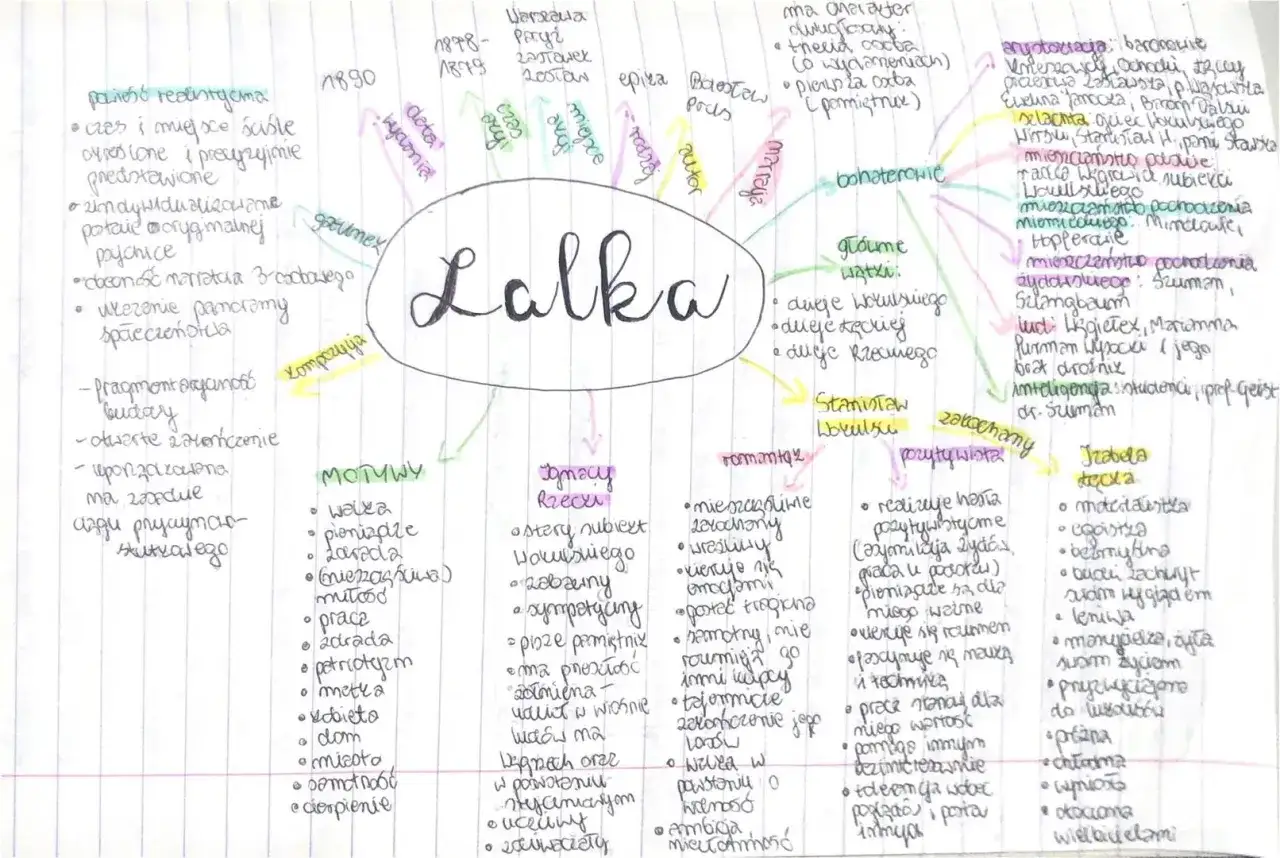 Lalka
gatunek
powieść realistyczna
• czas i miejsce ściśle
określone i precyzyjnie
przedstawione
• zindywidualizowane
postacie o oryginalnej
psychice
• obecność narratora 3-osobowego
• ukazanie panoramy
społeczeństwa
kompozycja
- fragmentaryczność
budowy
- otwarte zakończenie
- uporządkowana
na zasadzie
ciągu przyczynowo-
skutkowego
data
wydania
1890
czas
akcji
1878-
1879
miejsce
akcji
Warszawa
Paryż
Zasławek
Zasław
rodzaj
epika
autor
Bolesław
Prus
narracja
ma charakter
dwugłosowy:
• trzecia osoba
(o wydarzeniach)
• pierwsza osoba
(pamiętnik)
bohaterowie
arystokracja: baronowie
Krzeszowscy, Ochocki, Łęccy
prezesowa Zasławska, p. Wąsowska
Ewelina Janocka, Baron Dalski
szlachta: ojciec Wokulskiego
Wirski, Stanisław W., pani Stawska
mieszczaństwo polskie:
radca Węgrowicz, subiekci
Wokulskiego
mieszczaństwo pochodzenia
niemieckiego: Minclowie,
Hopferowie
mieszczaństwo pochodzenia
żydowskiego: Szuman,
Szlangbaum
lud: Węgiełek, Marianna
furman Wysocki i jego
brat dróżnik
inteligencja: studenci, prof. Geist
dr. Szuman
główne
wątki:
• dzieje Wokulskiego
• dzieje Łęckiej
• dzieje Rzeckiego
MOTYWY
• walka
• pieniądze
• zdrada
• (nieszczęśliwa)
miłość
• praca
• zdrada
• patriotyzm
• matka
• kobieta
• dom
• miasto
• samotność
• cierpienie
Ignacy
Rzecki
• stary subiekt
Wokulskiego
• zabawny
• sympatyczny
• pisze pamiętnik
• ma przeszłość
żołnierza -
udział w wiośnie
ludów na
Węgrzech oraz
w powstaniu
styczniowym
• uczciwy
• zdziwaczały
Stanisław
Wokulski
romantyk
• nieszczęśliwie
zakochany
• wrażliwy
• kieruje się
emocjami
• postać tragiczna
• samotny, nie
rozumieją go
inni kupcy
• tajemnicze
zakończenie jego
losów
• walka w
powstaniu o
wolność
• ambicja
nieczłonność
pozytywista
• realizuje hasła
pozytywistyczne
(asymilacja żydów,
praca u podstaw)
• pieniądze są dla
niego ważne
• kieruje się rozumem
• fascynuje się nauką
i techniką
• praca stanowi dla
niego wartość
• pomaga innym
bezinteresownie
• tolerancja wobec
poglądów, postaw
innych
zakochany
Izabela
Łęcka
• materialistka
• egoistka
• bezmyślna
• budzi zachwyt
swoim wyglądem
• leniwa
• żyła
swoim życiem
• przyzwyczajona
do luksusów
• próżna
• chłodna
• wyniosła
• otoczona
wielbicielami